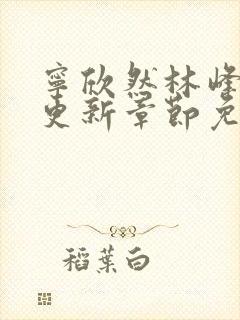 寧欣然林峰
更新章節免
稻葉白